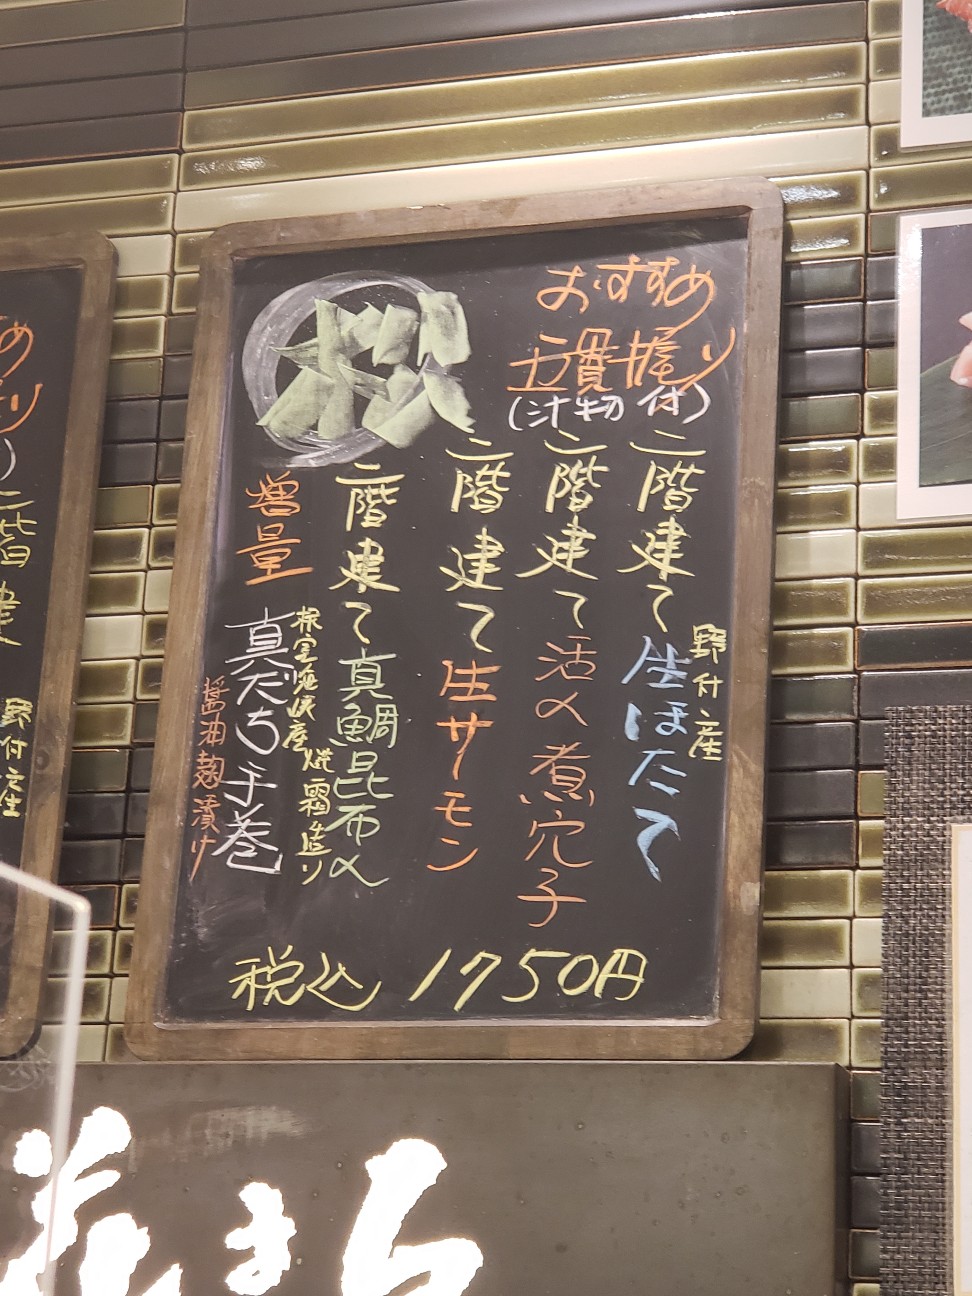 おすすめ
五貫握り
(汁物付)
二階建て生ほたて
野付産
二階建て活〆煮穴子
二階建て生サーモン
二階建て真鯛昆布〆
根室海峡産
焼霜造り
増量
真だち手巻
醤油麹漬け
税込1750円
め
り
)
二階建
野付産
花まる